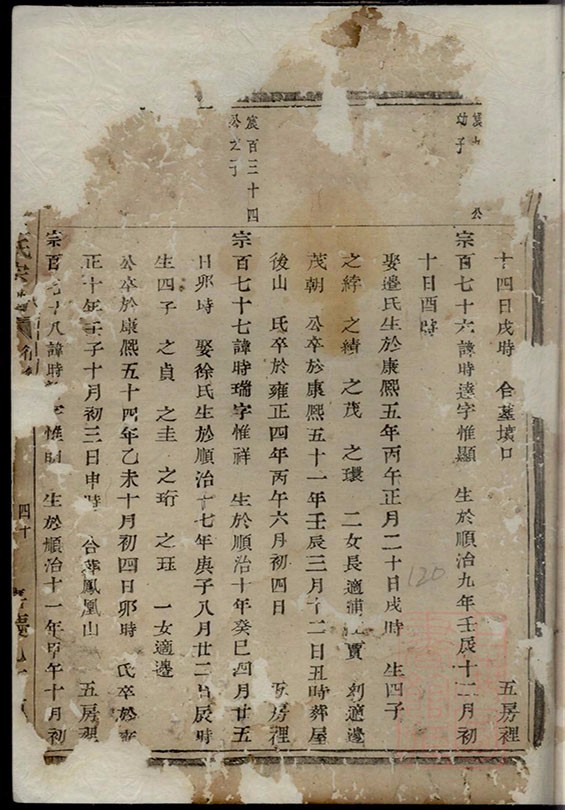 公
幼子
十四日戌時 合墓壙口 五房裡
宗百七十六諱時達字惟顯 生於順治九年壬辰十二月初
十日酉時
娶邉氏生於康熙五年丙午正月二十日戌時 生四子
之緈 之績 之茂 之環 二女長適浦江賈 適邉
茂朝 公卒於康熙五十一年壬辰三月十二日丑時葬屋
後山 氏卒於雍正四年丙午六月初四日 五房裡
宸百三十四
公之子
宗百七十七諱時瑞字惟祥 生於順治十年癸巳四月廿五
日卯時 娶徐氏生於順治十七年庚子八月廿二日辰時
生四子 之貞 之圭 之珩 之玨 一女適邉
公卒於康熙五十四年乙未十月初四日卯時 氏卒於雍
正十年壬子十月初三日申時 合葬鳳凰山 五房裡
宗百七十八諱時 字惟明 生於順治十一年甲午十月初
氏宗譜
四十
120